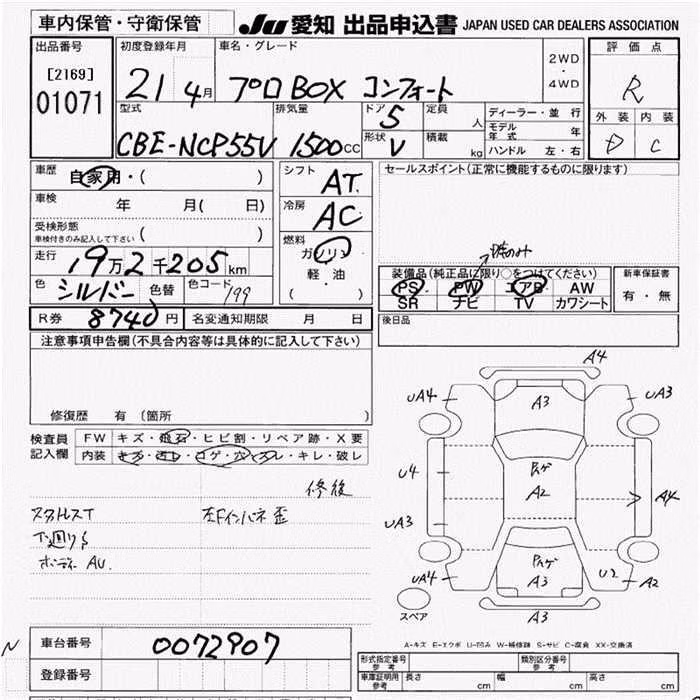 車内保管・守衛保管 JU 愛知 出品申込書 JAPAN USED CAR DEALERS ASSOCIATION
出品番号 初度登録年月 車名・グレード 2WD・4WD 評価点
[2169] 01071 21年4月 プロBOX コンフォート R
型式 排気量 ドア 5 定員 人 ディーラー・並行 外装 内装
モデル年式 年
CBE-NCP55V 1500cc 形状 V 積載 kg ハンドル 左・右 D C
車歴 自家用・( ) シフト AT セールスポイント(正常に機能するものに限ります)
車検 年 月( 日) 冷房 AC
受検形態 ( )
車検付きのみ記入して下さい
燃料 ガソリン
走行 19万2千205km 軽・油 装備品(純正品に限り○をつけてください) 新車保証書
色 シルバー 色替 色コード 199 ( ) PS PW エアB AW 有・無
SR ナビ TV カワシート
R券 8740円 名変通知期限 月 日 後日品
注意事項申告欄(不具合内容等は具体的に記入して下さい)
修復歴 有 (箇所 )
検査員記入欄 FW キズ・飛石・ヒビ割・リペア跡・X要
内装 キズ・汚レ・コゲ・穴・スレ・キレ・破レ
修後
スタルスT 左Fインパネ歪
下廻りS
ボディ AU.
A4
UA4 A3 UA3
U4 A2 A4
UA3
UA4 A3 U2 A2
スペア A3
A-キズ E-エクボ U-凹み W-補修跡 S-サビ C-腐食 XX-交換済
N 車台番号 0072907
登録番号
形式指定番号 参考 類別区分番号 参考
車庫証明用 参考 長さ cm 幅 cm 高さ cm